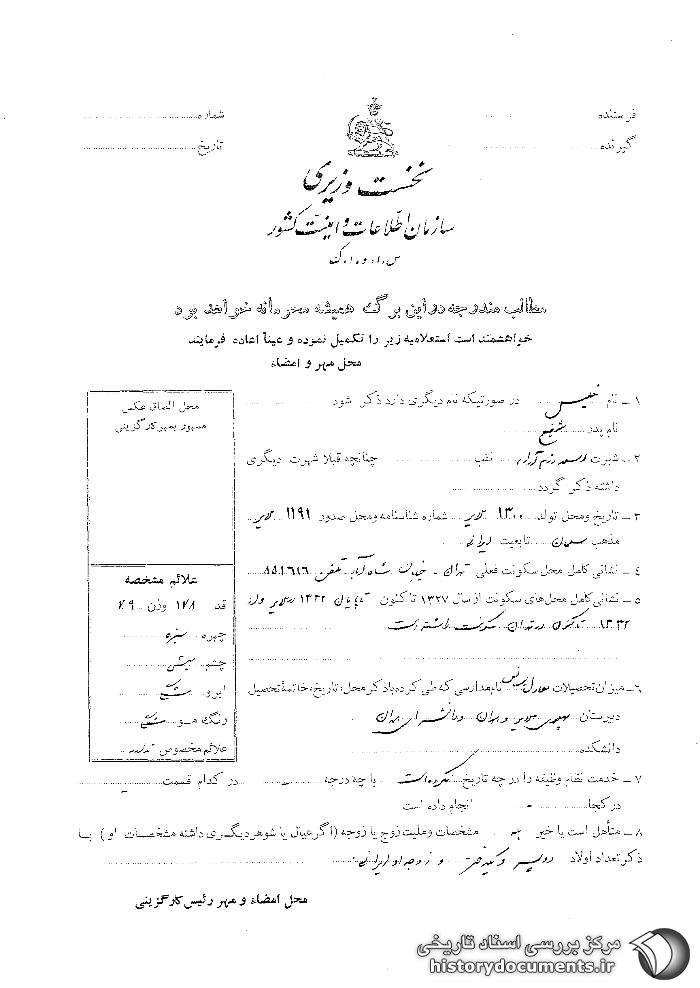 فرستنده
شماره
گیرنده
تاریخ
نخست وزیری
سازمان اطلاعات و امنیت کشور
س.ا.و.ا.ک
مطالب مندرجه در این برگ همیشه محرمانه خواهد بود
خواهشمند است استعلامیه زیر را تکمیل نموده و عیناً اعاده فرمایند
محل مهر و امضاء
۱ــ نام نفیس در صورتیکه نام دیگری دارد ذکر شود
نام پدر شفیع
۲ــ شهرت لقب چنانچه قبلا شهرت دیگری
داشته ذکر گردد
۳ــ تاریخ و محل تولد ۱۳۰۰ ملایر شماره شناسنامه و محل صدور ۱۱۹۱ ملایر
مذهب مسلمان تابعیت ایرانی
۴ــ نشانی کامل محل سکونت فعلی تهران ـ خیابان شاه آباد تلفن
۵ــ نشانی کامل محل‌های سکونت از سال ۱۳۲۷ تا کنون تا پایان ۱۳۳۲ ملایر و از
۱۳۳۲ تاکنون در تهران سکونت داشته است
۶ــ میزان تحصیلات معادل لیسانس نام مدارسی که طی کرده با ذکر محل، تاریخ، خاتمه تحصیل
دبیرستان پهلوی ملایر و تهران و دانشسرای تهران
دانشکده
۷ــ خدمت نظام وظیفه را در چه تاریخ نکرده است با چه درجه ــ در کدام قسمت ــ
در کجا ـ انجام داده است
۸ــ متأهل است یا خیر بله مشخصات و ملیت زوج یا زوجه (اگر عیال یا شوهر دیگری داشته مشخصات او) با
ذکر تعداد اولاد دو پسر و یکدختر و زوجه او ایرانی
محل امضاء و مهر رئیس کارگزینی
محل الصاق عکس
ممهور بمهر کارگزینی
علائم مشخصه
قد ۱۷۸ وزن ۷۹
چهره سبزه
چشم میشی
ابرو مشکی
رنگ مو مشکی
علائم مخصوص ندارد
مرکز بررسی اسناد تاریخی
historydocuments.ir